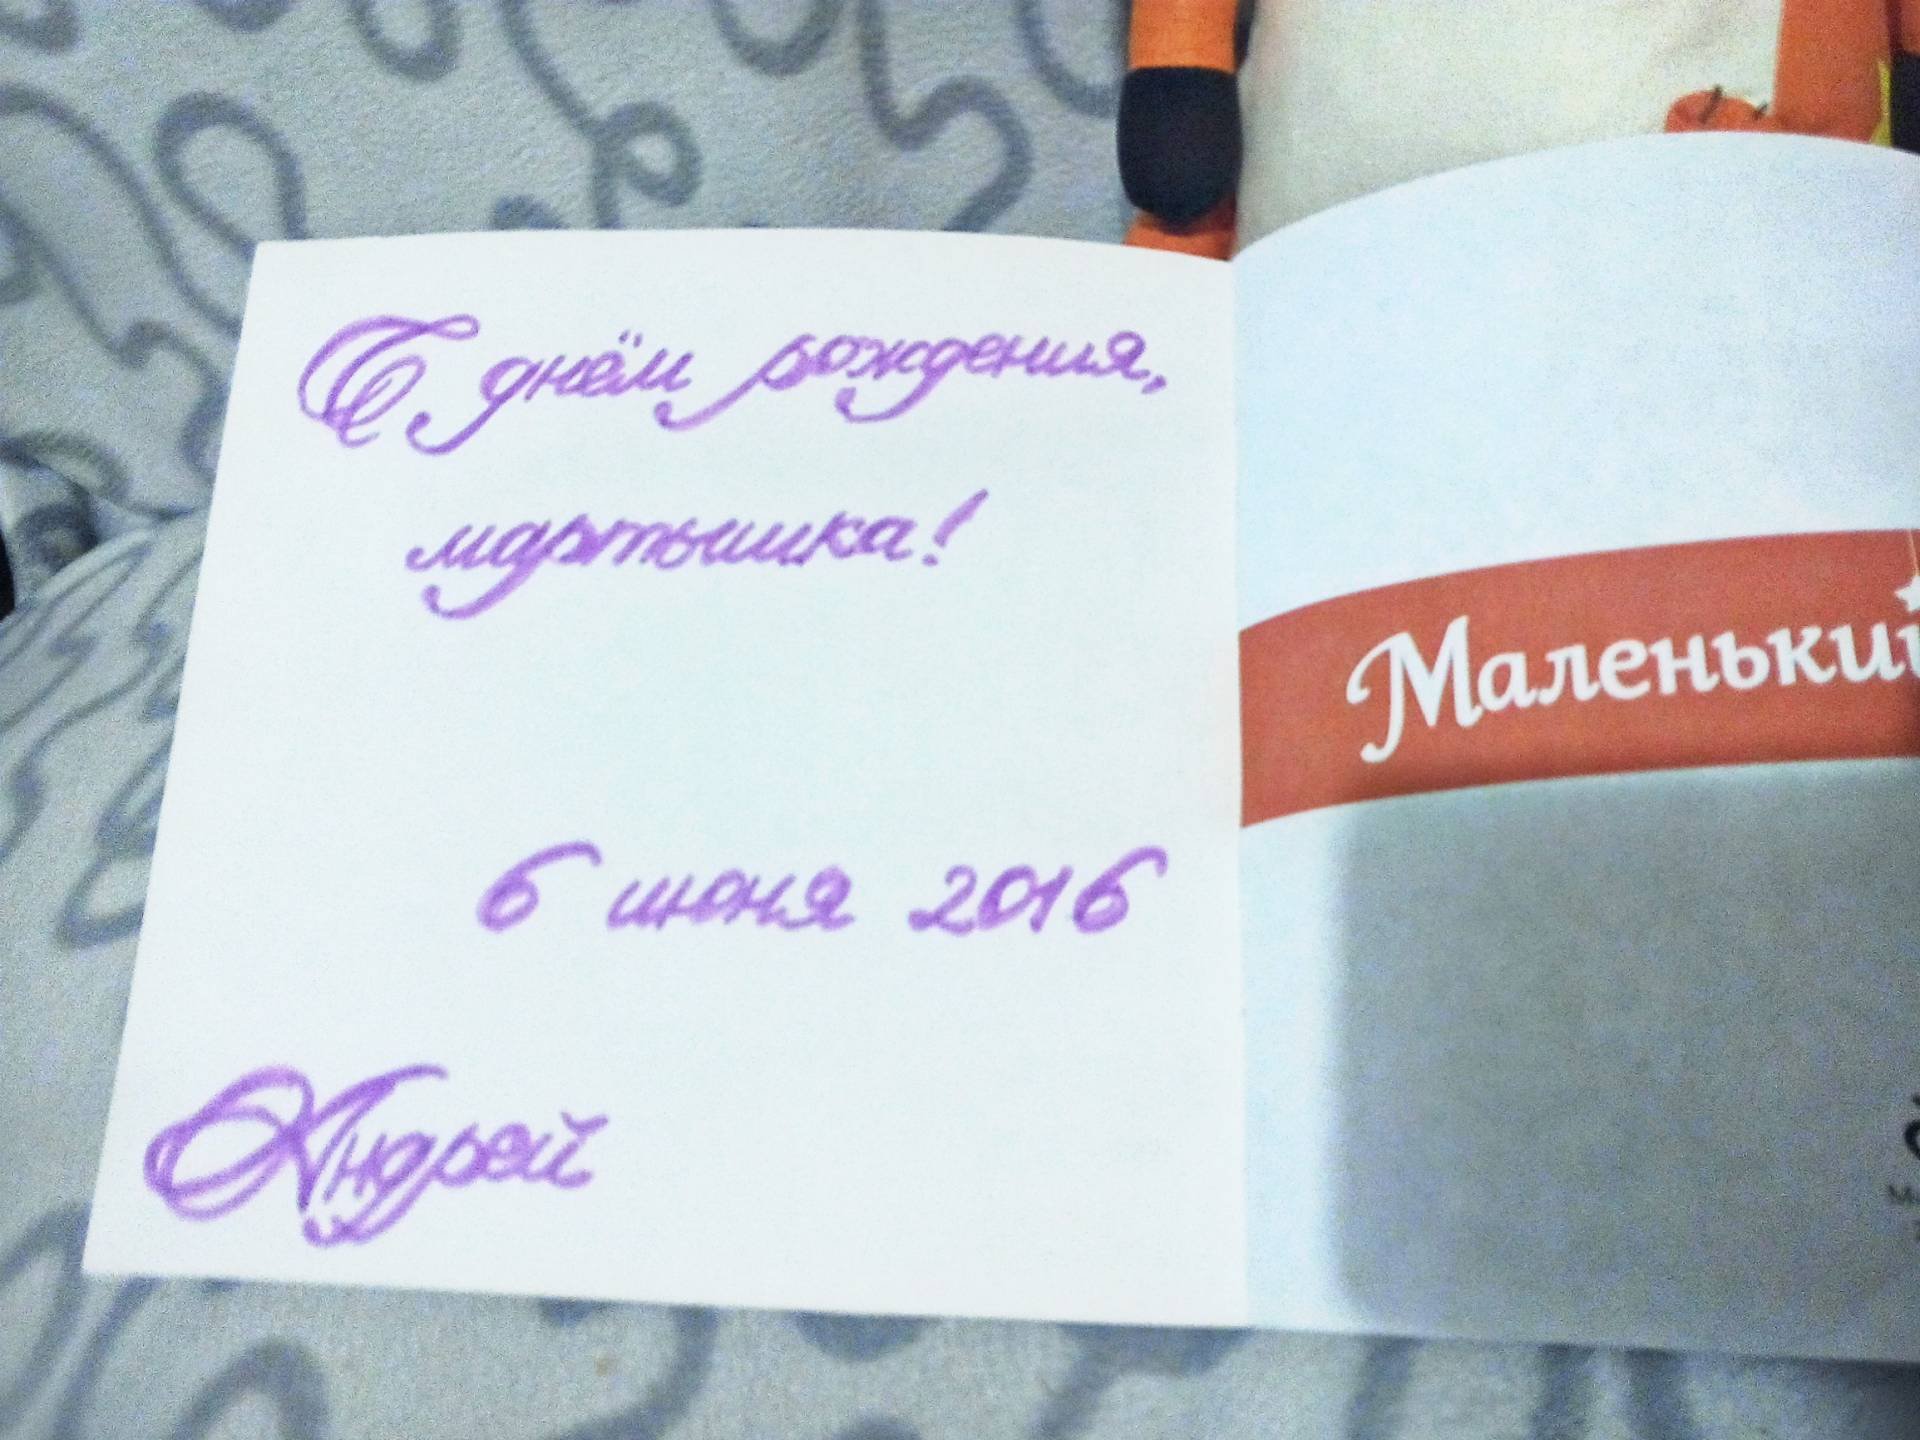 С днём рождения,
мартышка!
6 июня 2016
Андрей
Маленький